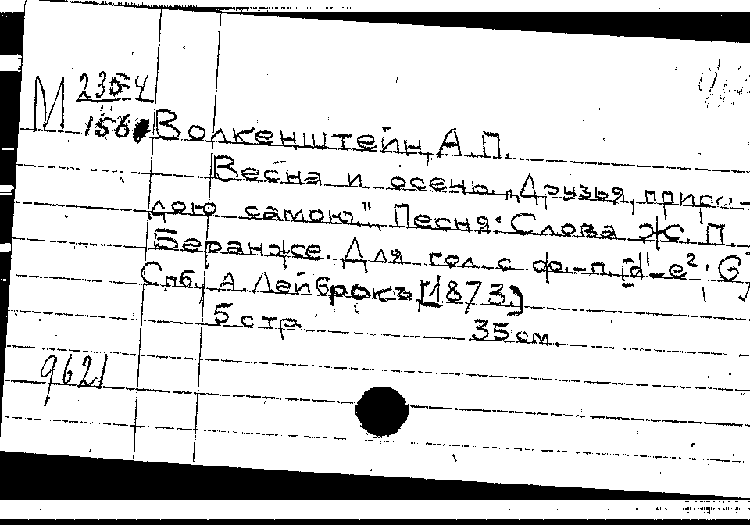 М 2354
156
Волкенштейн, А.П.
Весна и осень. „Друзья, приро-
дою самою" Песня: Слова Ж. П.
Беранже. Для гол. с ф.-п. [d'-e²; G
Спб., А. Лейброкъ, [1873.]
5 стр 35 см.
9621